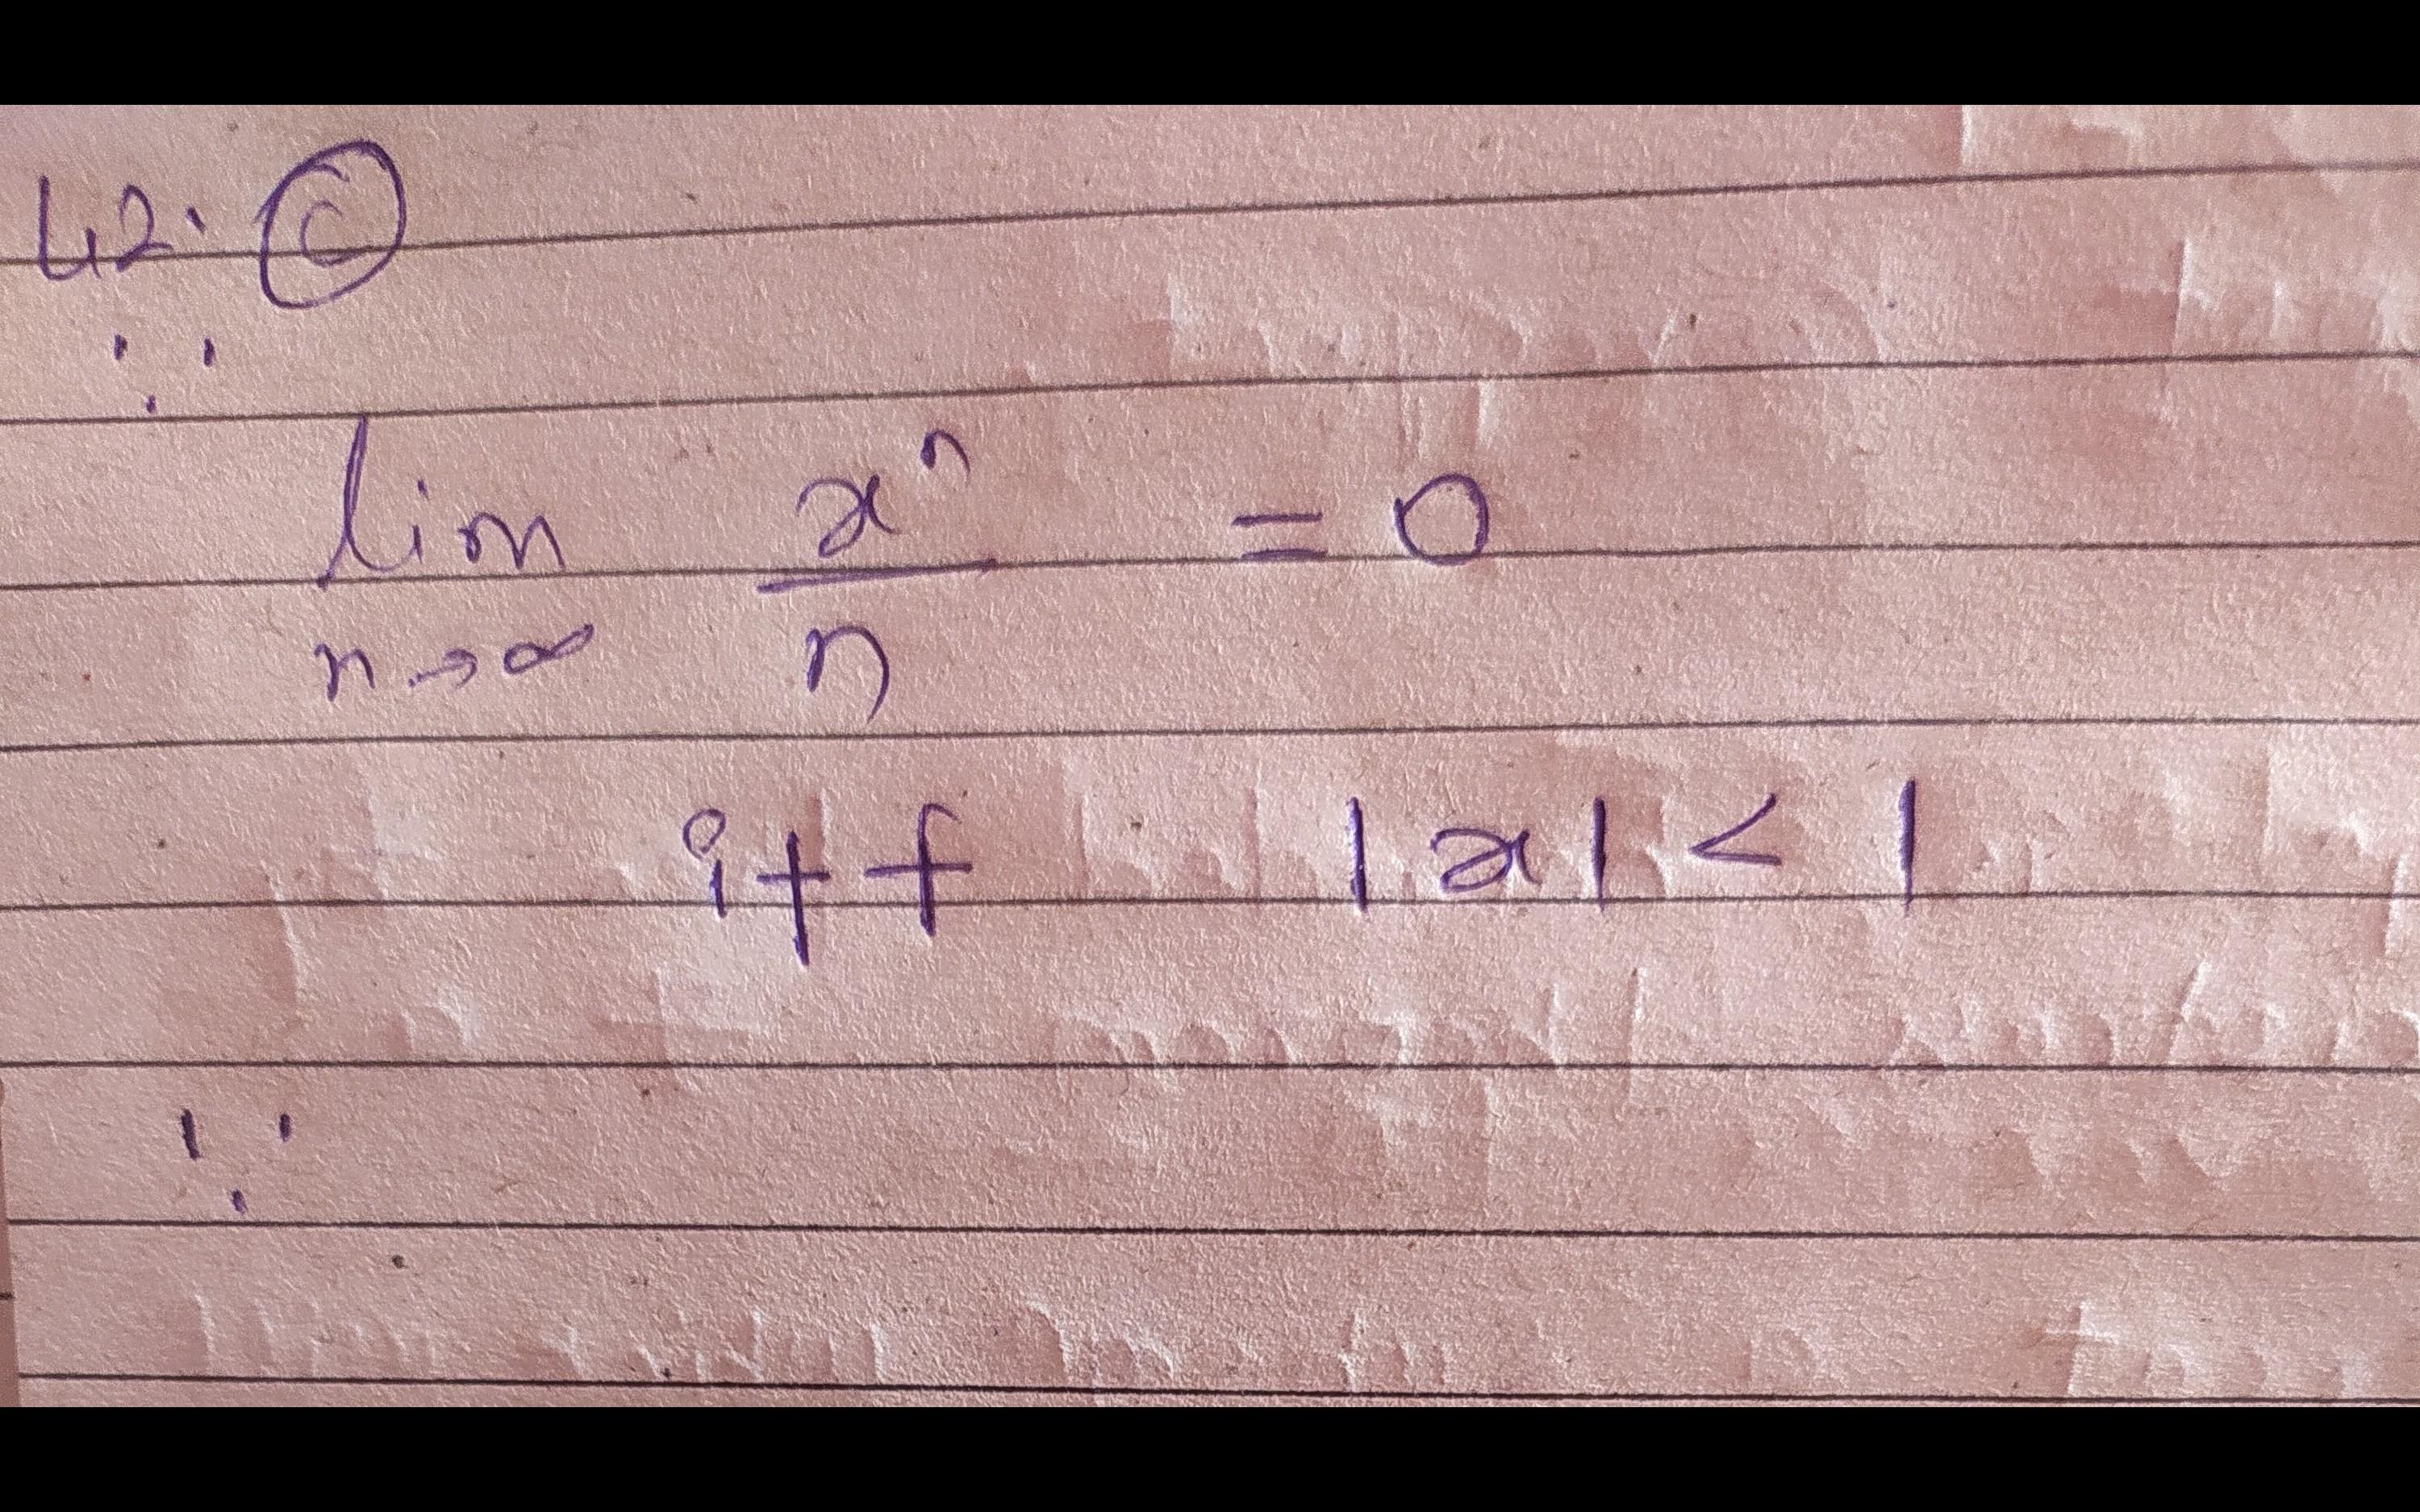 42. ⓒ
∵
lim xⁿ/n = 0
n→∞
iff |x| < 1
∵